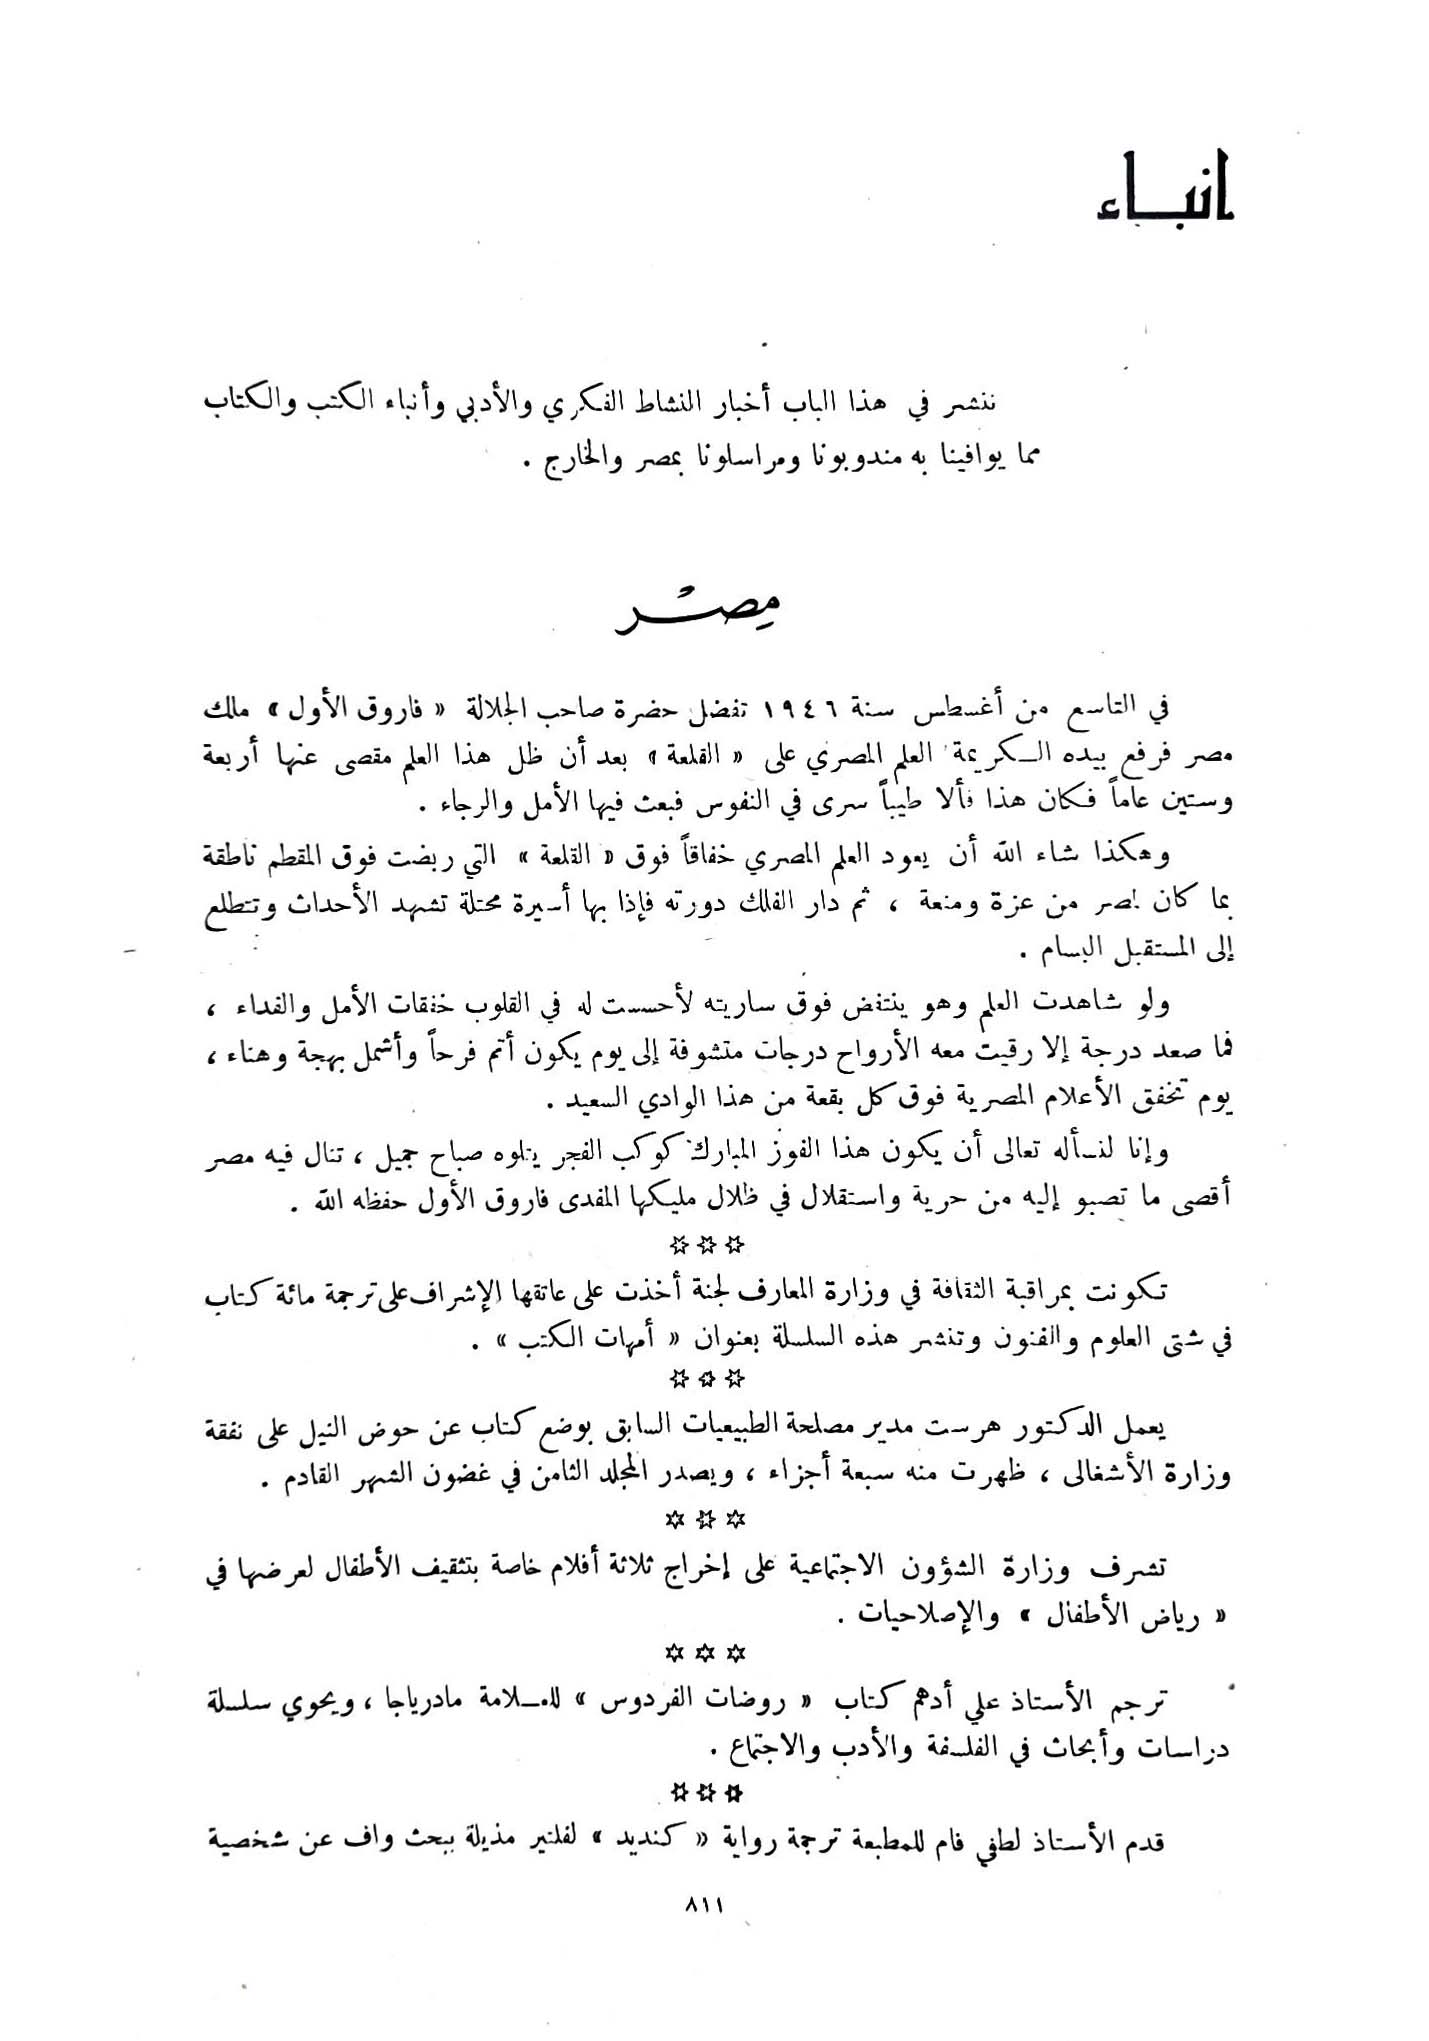 انباء
ننشر في هذا الباب أخبار النشاط الفكري والأدبي وأنباء الكتب والكتاب
مما يوافينا به مندوبونا ومراسلونا بمصر والخارج .
مِصْر
في التاسع من أغسطس سنة ١٩٤٦ تفضل حضرة صاحب الجلالة « فاروق الأول » ملك
مصر فرفع بيده الكريمة العلم المصري على « القلعة » بعد أن ظل هذا العلم مقصى عنها أربعة
وستين عاماً فكان هذا فألا طيباً سرى في النفوس فبعث فيها الأمل والرجاء .
وهكذا شاء الله أن يعود العلم المصري خفاقاً فوق « القلعة » التي ربضت فوق المقطم ناطقة
بما كان لمصر من عزة ومنعة ، ثم دار الفلك دورته فإذا بها أسيرة محتلة تشهد الأحداث وتتطلع
إلى المستقبل البسام .
ولو شاهدت العلم وهو ينتفض فوق ساريته لأحسست له في القلوب خفقات الأمل والفداء ،
فما صعد درجة إلا رقيت معه الأرواح درجات متشوفة إلى يوم يكون أتم فرحاً وأشمل بهجة وهناء ،
يوم تخفق الأعلام المصرية فوق كل بقعة من هذا الوادي السعيد .
وإنا لنسأله تعالى أن يكون هذا الفوز المبارك كوكب الفجر يتلوه صباح جميل ، تنال فيه مصر
أقصى ما تصبو إليه من حرية واستقلال في ظلال مليكها المفدى فاروق الأول حفظه الله .
✡ ✡ ✡
تكونت بمراقبة الثقافة في وزارة المعارف لجنة أخذت على عاتقها الإشراف على ترجمة مائة كتاب
في شتى العلوم والفنون وتنشر هذه السلسلة بعنوان « أمهات الكتب » .
✡ ✡ ✡
يعمل الدكتور هرست مدير مصلحة الطبيعيات السابق بوضع كتاب عن حوض النيل على نفقة
وزارة الأشغالى ، ظهرت منه سبعة أجزاء ، ويصدر المجلد الثامن في غضون الشهر القادم .
✡ ✡ ✡
تشرف وزارة الشؤون الاجتماعية على إخراج ثلاثة أفلام خاصة بتثقيف الأطفال لعرضها في
« رياض الأطفال » والإصلاحيات .
✡ ✡ ✡
ترجم الأستاذ علي أدهم كتاب « روضات الفردوس » للعلامة مادرياجا ، ويحوي سلسلة
دراسات وأبحاث في الفلسفة والأدب والاجتماع .
✡ ✡ ✡
قدم الأستاذ لطفي فام للمطبعة ترجمة رواية « كنديد » لفلتير مذيلة ببحث واف عن شخصية
٨١١